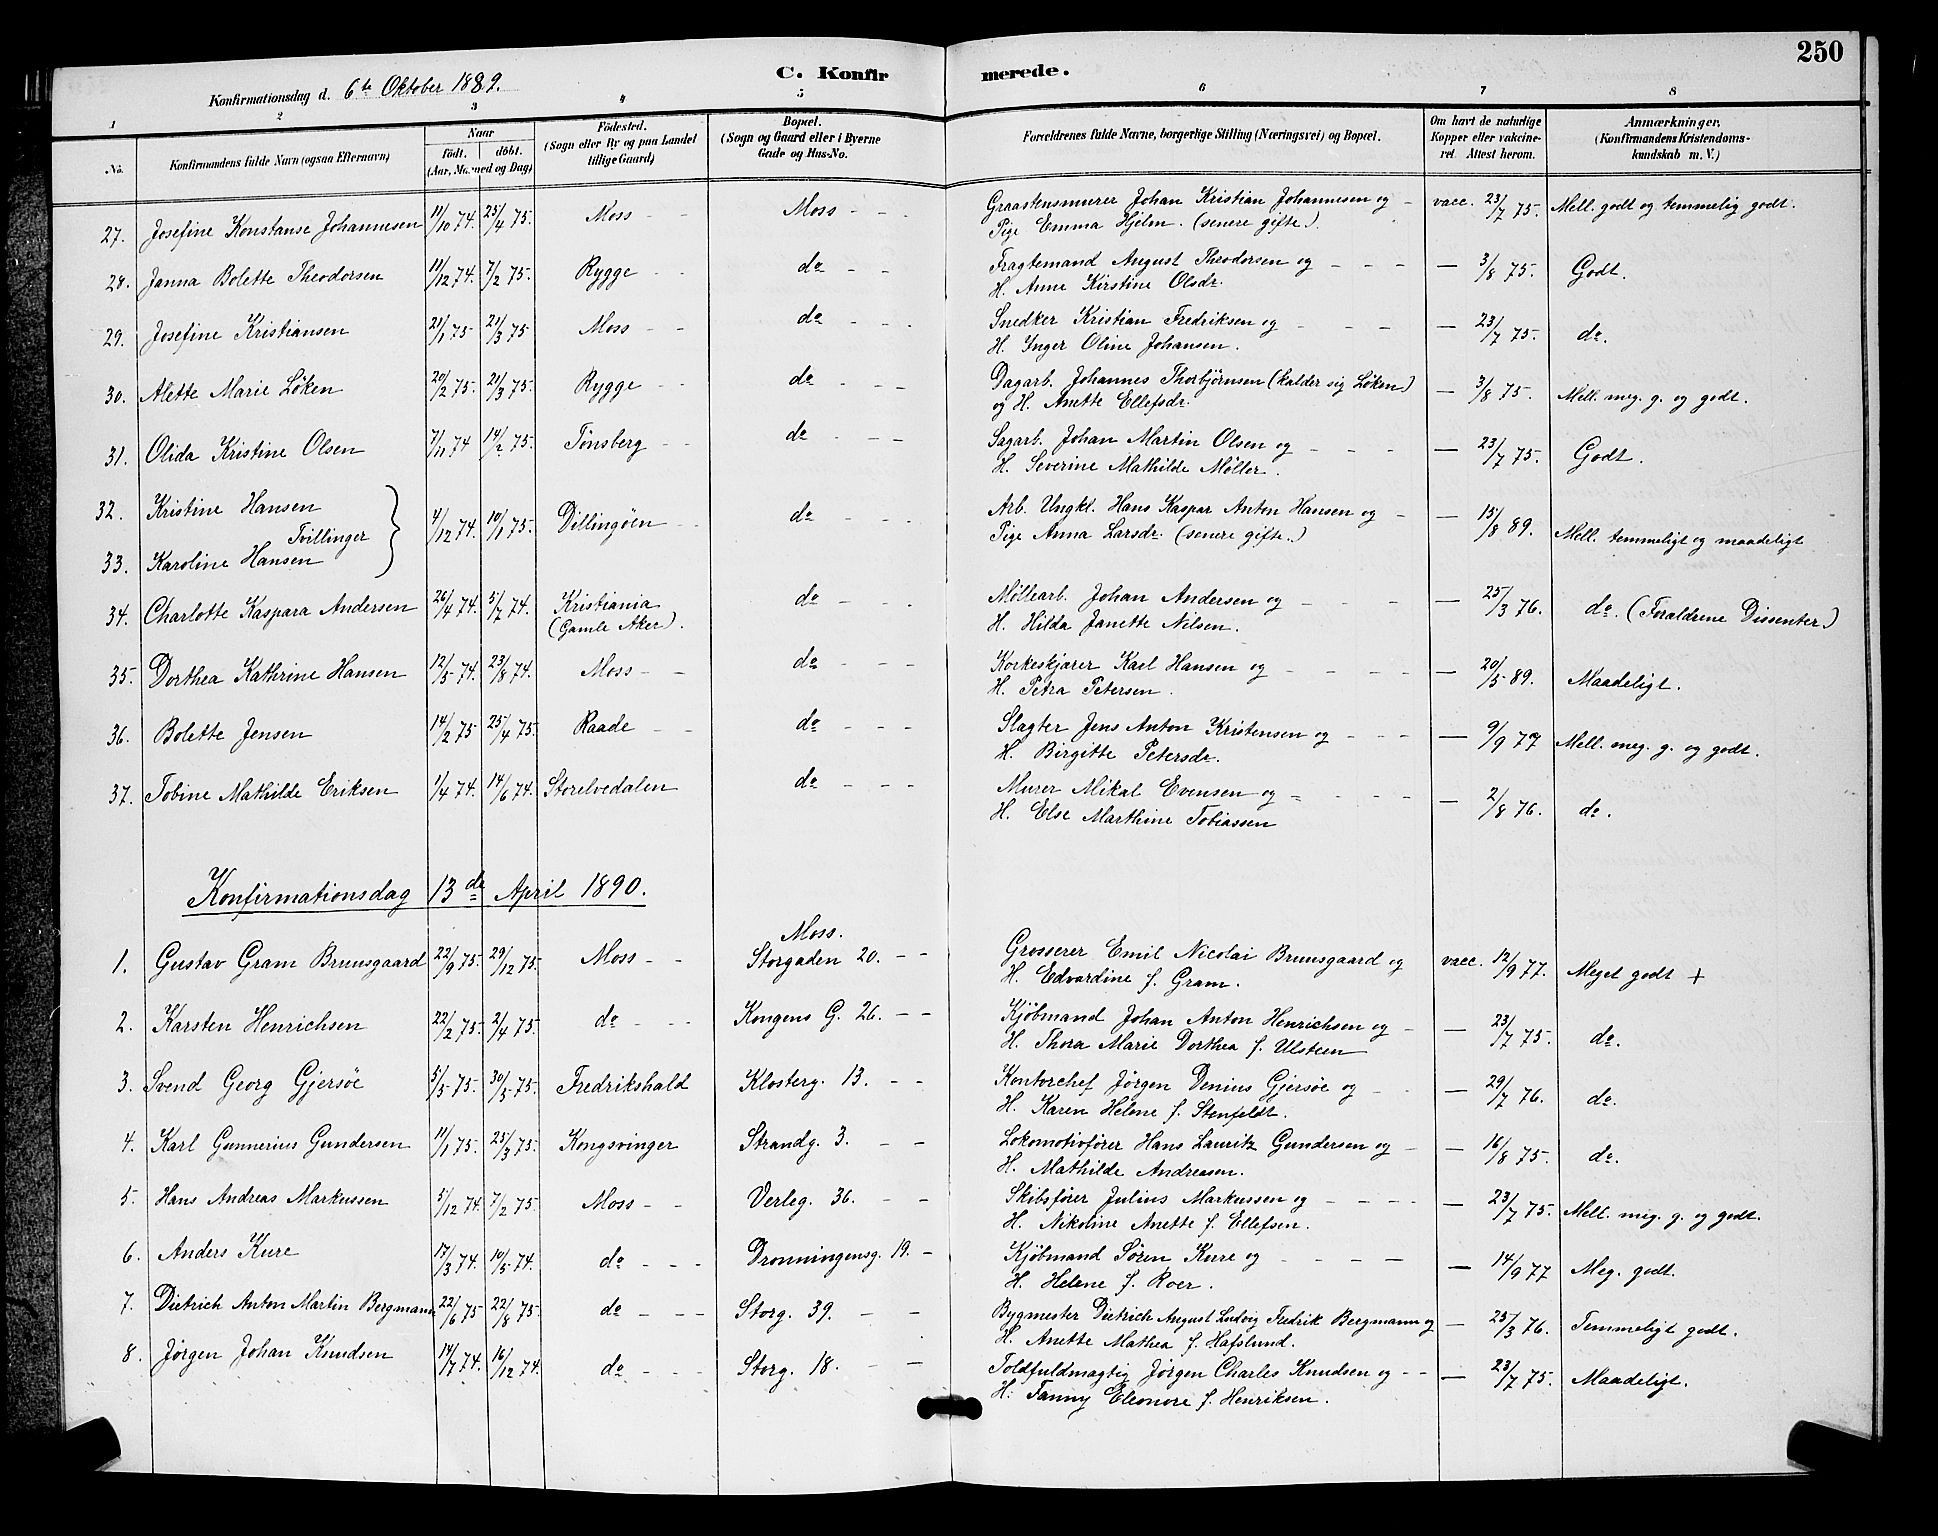 250
Konfirmationsdag d. 6te Oktober 1889. C. Konfirmerede.
1 2 3 4 5 6 7 8
No. Konfirmandens fulde Navn (ogsaa Efternavn) Naar födt. döbt. (Aar, Maaned og Dag) Födested. (Sogn eller By og paa Landet tillige Gaard) Bopæl. (Sogn og Gaard eller i Byerne Gade og Hus-No. Forældrenes fulde Navne, borgerlige Stilling (Næringsvei) og Bopæl. Om havt de naturlige Kopper eller vakcineret. Attest herom. Anmærkninger. (Konfirmandens Kristendomskundskab m. V.)
27. Josefine Konstanse Johannesen 11/10 74. 25/4 75. Moss - - Moss - - - Graastensmurer Johan Kristian Johannesen og - vacc. 23/7 75. Mell. godt og temmelig godt.
Pige Emma Hjelm. (senere gifte).
28. Janna Bolette Theodorsen 11/12 74. 7/2 75. Rygge - - do - - Fragtemand August Theodorsen og - - - — 3/8 75. Godt.
H. Anne Kirstine Olsdr.
29. Josefine Kristiansen 21/1 75 21/3 75 Moss - - do - - - Snedker Kristian Fredriksen og - - - - — 23/7 75. do.
H. Inger Oline Johansen.
30. Alette Marie Löken 20/2 75. 21/3 75. Rygge - - do - - - Dagarb. Johannes Thorbjörnsen (kalder sig Löken) — 3/8 75. Mell. meg. g. og godt.
og H. Anette Ellefsdr.
31. Olida Kristine Olsen 7/11 74 14/2 75. Tönsberg - - do - - - Sagarb. Johan Martin Olsen og - - - - — 23/7 75. Godt.
H. Severine Mathilde Möller.
32. Kristine Hansen
Tvillinger 4/12 74. 10/1 75. Dillingöen - - do - - - Arb. Ungkl. Hans Kaspar Anton Hansen og - — 15/8 89. Mell. temmeligt og maadeligt
33. Karoline Hansen Pige Anna Larsdr. (senere gifte.)
34. Charlotte Kaspara Andersen 26/4 74. 5/7 74. Kristiania (Gamle Aker). do - - - Möllearb. Johan Andersen og - - - - — 25/3 76. do. (Foraldrene Dissenter)
H. Hilda Janette Nilsen.
35. Dorthea Kathrine Hansen 12/5 74. 23/8 74. Moss - - do - - - Korkeskjærer Karl Hansen og - - - - — 20/5 89. Maadeligt.
H. Petra Petersen.
36. Bolette Jensen 14/2 75 25/4 75. Raade - - do - - - Slagter Jens Anton Kristensen og - - - — 9/9 77 Mell. meg. g. og godt.
H. Birgitte Petersdr.
37. Tobine Mathilde Eriksen 1/4 74. 14/6 74. Storelvedalen do - - - Murer Mikal Evensen og - - - - — 2/8 76. do.
H. Else Marthine Tobiassen
Konfirmationsdag 13de April 1890.
Moss.
1. Gustav Gram Bruusgaard 22/9 75. 29/12 75. Moss - - Storgaden 20. - - Grosserer Emil Nicolai Bruusgaard og vacc. 12/9 77. Meget godt +
H. Edvardine f. Gram.
2. Karsten Henrichsen 22/2 75. 2/4 75. do - - - Kongens G. 26. - - Kjöbmand Johan Anton Henrichsen og - — 23/7 75. do.
H. Thora Marie Dorthea f. Ulsteen
3. Svend Georg Gjersöe 5/5 75. 30/5 75. Fredrikshald Klosterg. 13. - - Kontorchef Jörgen Denius Gjersöe og - - — 29/7 76. do.
H. Karen Helene f. Stenfeldt.
4. Karl Gunnerius Gundersen 11/1 75. 25/3 75. Kongsvinger Strandg. 3. - - Lokomotivförer Hans Lauritz Gundersen og - — 16/8 75. do.
H. Mathilde Andreasen.
5. Hans Andreas Markussen 5/12 74. 7/2 75. Moss - - Verleg. 36. - - Skibsförer Julius Markussen og - - - - — 23/7 75. Mell. meg. g. og godt.
H. Nikoline Anette f. Ellefsen.
6. Anders Kure 17/3 74. 10/5 74. do - - - Dronningensg. 19. - Kjöbmand Sören Kure og - - - - — 14/9 77 Meg. godt.
H. Helene f. Roer.
7. Dietrich Anton Martin Bergmann 22/6 75 22/8 75. do - - - Storg. 39. - - Bygmester Dietrich August Ludvig Fredrik Bergmann og — 25/3 76. Temmeligt godt.
H. Anette Mathea f. Hafslund.
8. Jörgen Johan Knudsen 14/7 74. 16/12 74. do - - - Storg. 18. - - Toldfuldmægtig Jörgen Charles Knudsen og - - — 23/7 75. Maadeligt.
H. Fanny Eleonore f. Henriksen.